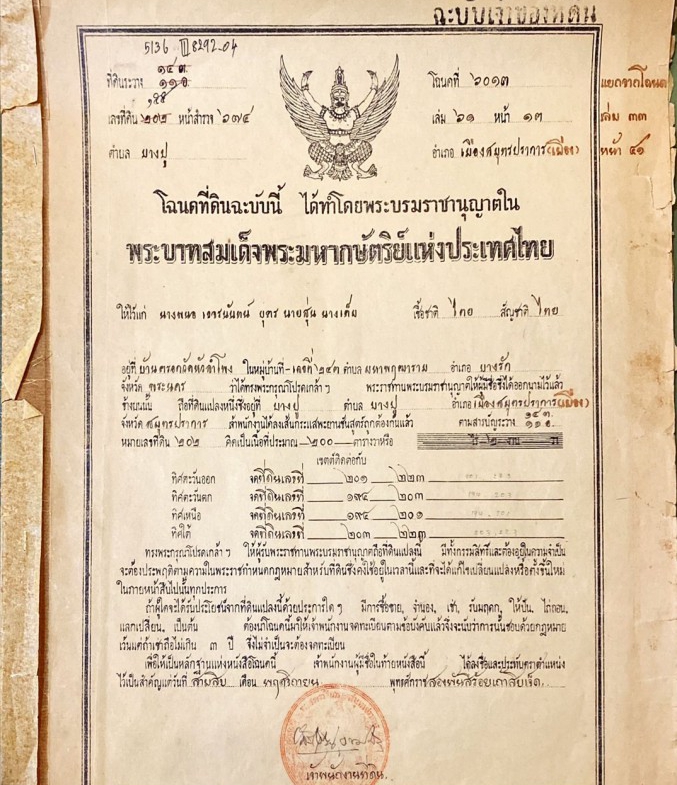 ฉะบับเจ้าของที่ดิน
5136 III 8292-04
๑๔ ต.
ที่ดินระวาง ๑๑ อ. โฉนดที่ ๖๐๑๓ แยกจากโฉนด
เลขที่ดิน ๒๐๒ หน้าสำรวจ ๖๗๔ เล่ม ๖๑ หน้า ๑๓ เล่ม ๓๓
ตำบล บางปู อำเภอ เมืองสมุทรปราการ(เมือง) หน้า ๔๑
โฉนดที่ดินฉะบับนี้ ได้ทำโดยพระบรมราชานุญาตใน
พระบาทสมเด็จพระมหากษัตริย์แห่งประเทศไทย
ให้ไว้แก่ บุตร นายสุ่น นางเต็ม เชื้อชาติ ไทย สัญชาติ ไทย
อยู่ที่ บ้านตรอกวัดหัวลำโพง ในหมู่บ้านที่-เลขที่ ๒๔๓ ตำบล มหาพฤฒาราม อำเภอ บางรัก
จังหวัด พระนคร ว่าได้ทรงพระกรุณาโปรดเกล้า ฯ พระราชทานพระบรมราชานุญาตให้ผู้มีชื่อซึ่งได้ออกนามไว้แล้ว
ข้างบนนั้น ถือที่ดินแปลงหนึ่งซึ่งอยู่ที่ บางปู ตำบล บางปู อำเภอ เมืองสมุทรปราการ(เมือง)
จังหวัด สมุทรปราการ ตามสารบัญระวาง ๑๔ ต. ๑๑ อ.
หมายเลขที่ดิน ๒๐๒ คิดเป็นเนื้อที่ประมาณ ๒๐๐ ตารางวาหรือ
เขตต์ติดต่อกับ
ทิศตะวันออก จดที่ดินเลขที่ ๒๐๑ ๒๒๓
ทิศตะวันตก จดที่ดินเลขที่ ๑๙๔ ๒๐๓
ทิศเหนือ จดที่ดินเลขที่ ๑๙๔ ๒๐๑
ทิศใต้ จดที่ดินเลขที่ ๒๐๓ ๒๒๓
ทรงพระกรุณาโปรดเกล้า ฯ ให้ผู้รับพระราชทานพระบรมราชานุญาตถือที่ดินแปลงนี้ มีทั้งกรรมสิทธิ์และต้องอยู่ในความจำเป็น
จะต้องประพฤติตามความในพระราชกำหนดกฎหมายสำหรับที่ดินซึ่งคงใช้อยู่ในเวลานี้และที่จะได้แก้ไขเปลี่ยนแปลงหรือตั้งขึ้นใหม่
ในภายหน้าสืบไปนั้นทุกประการ
ถ้าผู้ใดจะได้รับประโยชน์จากที่ดินแปลงนี้ด้วยประการใด ๆ มีการซื้อขาย, จำนอง, เช่า, รับมฤดก, ให้ปัน, ไถ่ถอน,
แลกเปลี่ยน, เป็นต้น ต้องนำโฉนดนี้มาให้เจ้าพนักงานจดทะเบียนตามข้อบังคับแล้วจึ่งจะนับว่าการนั้นชอบด้วยกฎหมาย
เว้นแต่ถ้าเช่าถือไม่เกิน ๓ ปี จึ่งไม่จำเป็นจะต้องจดทะเบียน
เพื่อให้เป็นหลักฐานแห่งหนังสือโฉนดนี้ เจ้าพนักงานผู้มีชื่อในท้ายหนังสือนี้ ได้ลงชื่อและประทับตราตำแหน่ง
ไว้เป็นสำคัญแต่วันที่ สามสิบ เดือน พฤศจิกายน พุทธศักราช สองพันสี่ร้อยเก้าสิบเจ็ด.
เจ้าพนักงานที่ดิน.